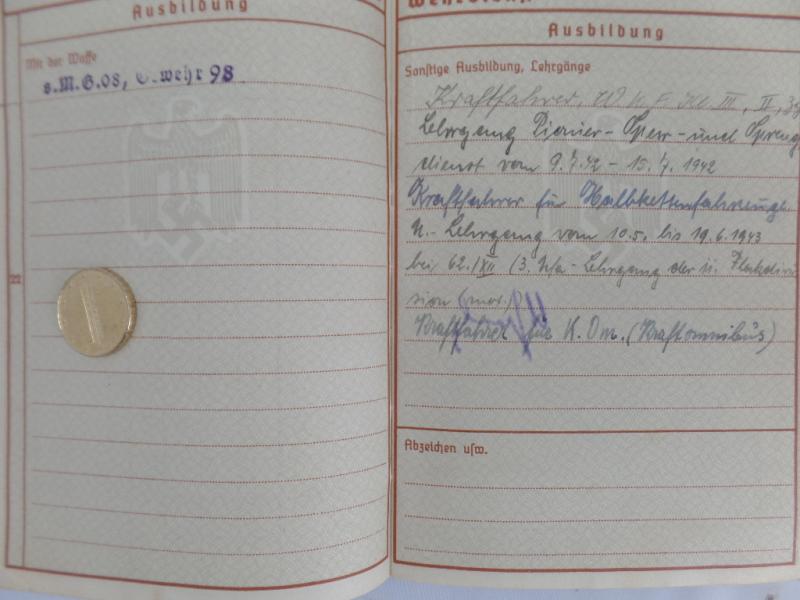 Ausbildung
Mit der Waffe
s.M.G.08, G.wehr 98
22
Ausbildung
Sonstige Ausbildung, Lehrgänge
Kraftfahrer, W K F Kl III, II,
Lehrgang Pionier-Sperr-und Spreng
dienst vom 9.7.42 - 15.7.1942
Kraftfahrer für Halbkettenfahrzeuge
U.-Lehrgang vom 10.5. bis 19.6.1943
bei 62./XII (3. Ufa-Lehrgang der 11. Flakdivi
sion (mot.)
Kraftfahrer für K.Om. (Kraftomnibus)
Abzeichen usw.